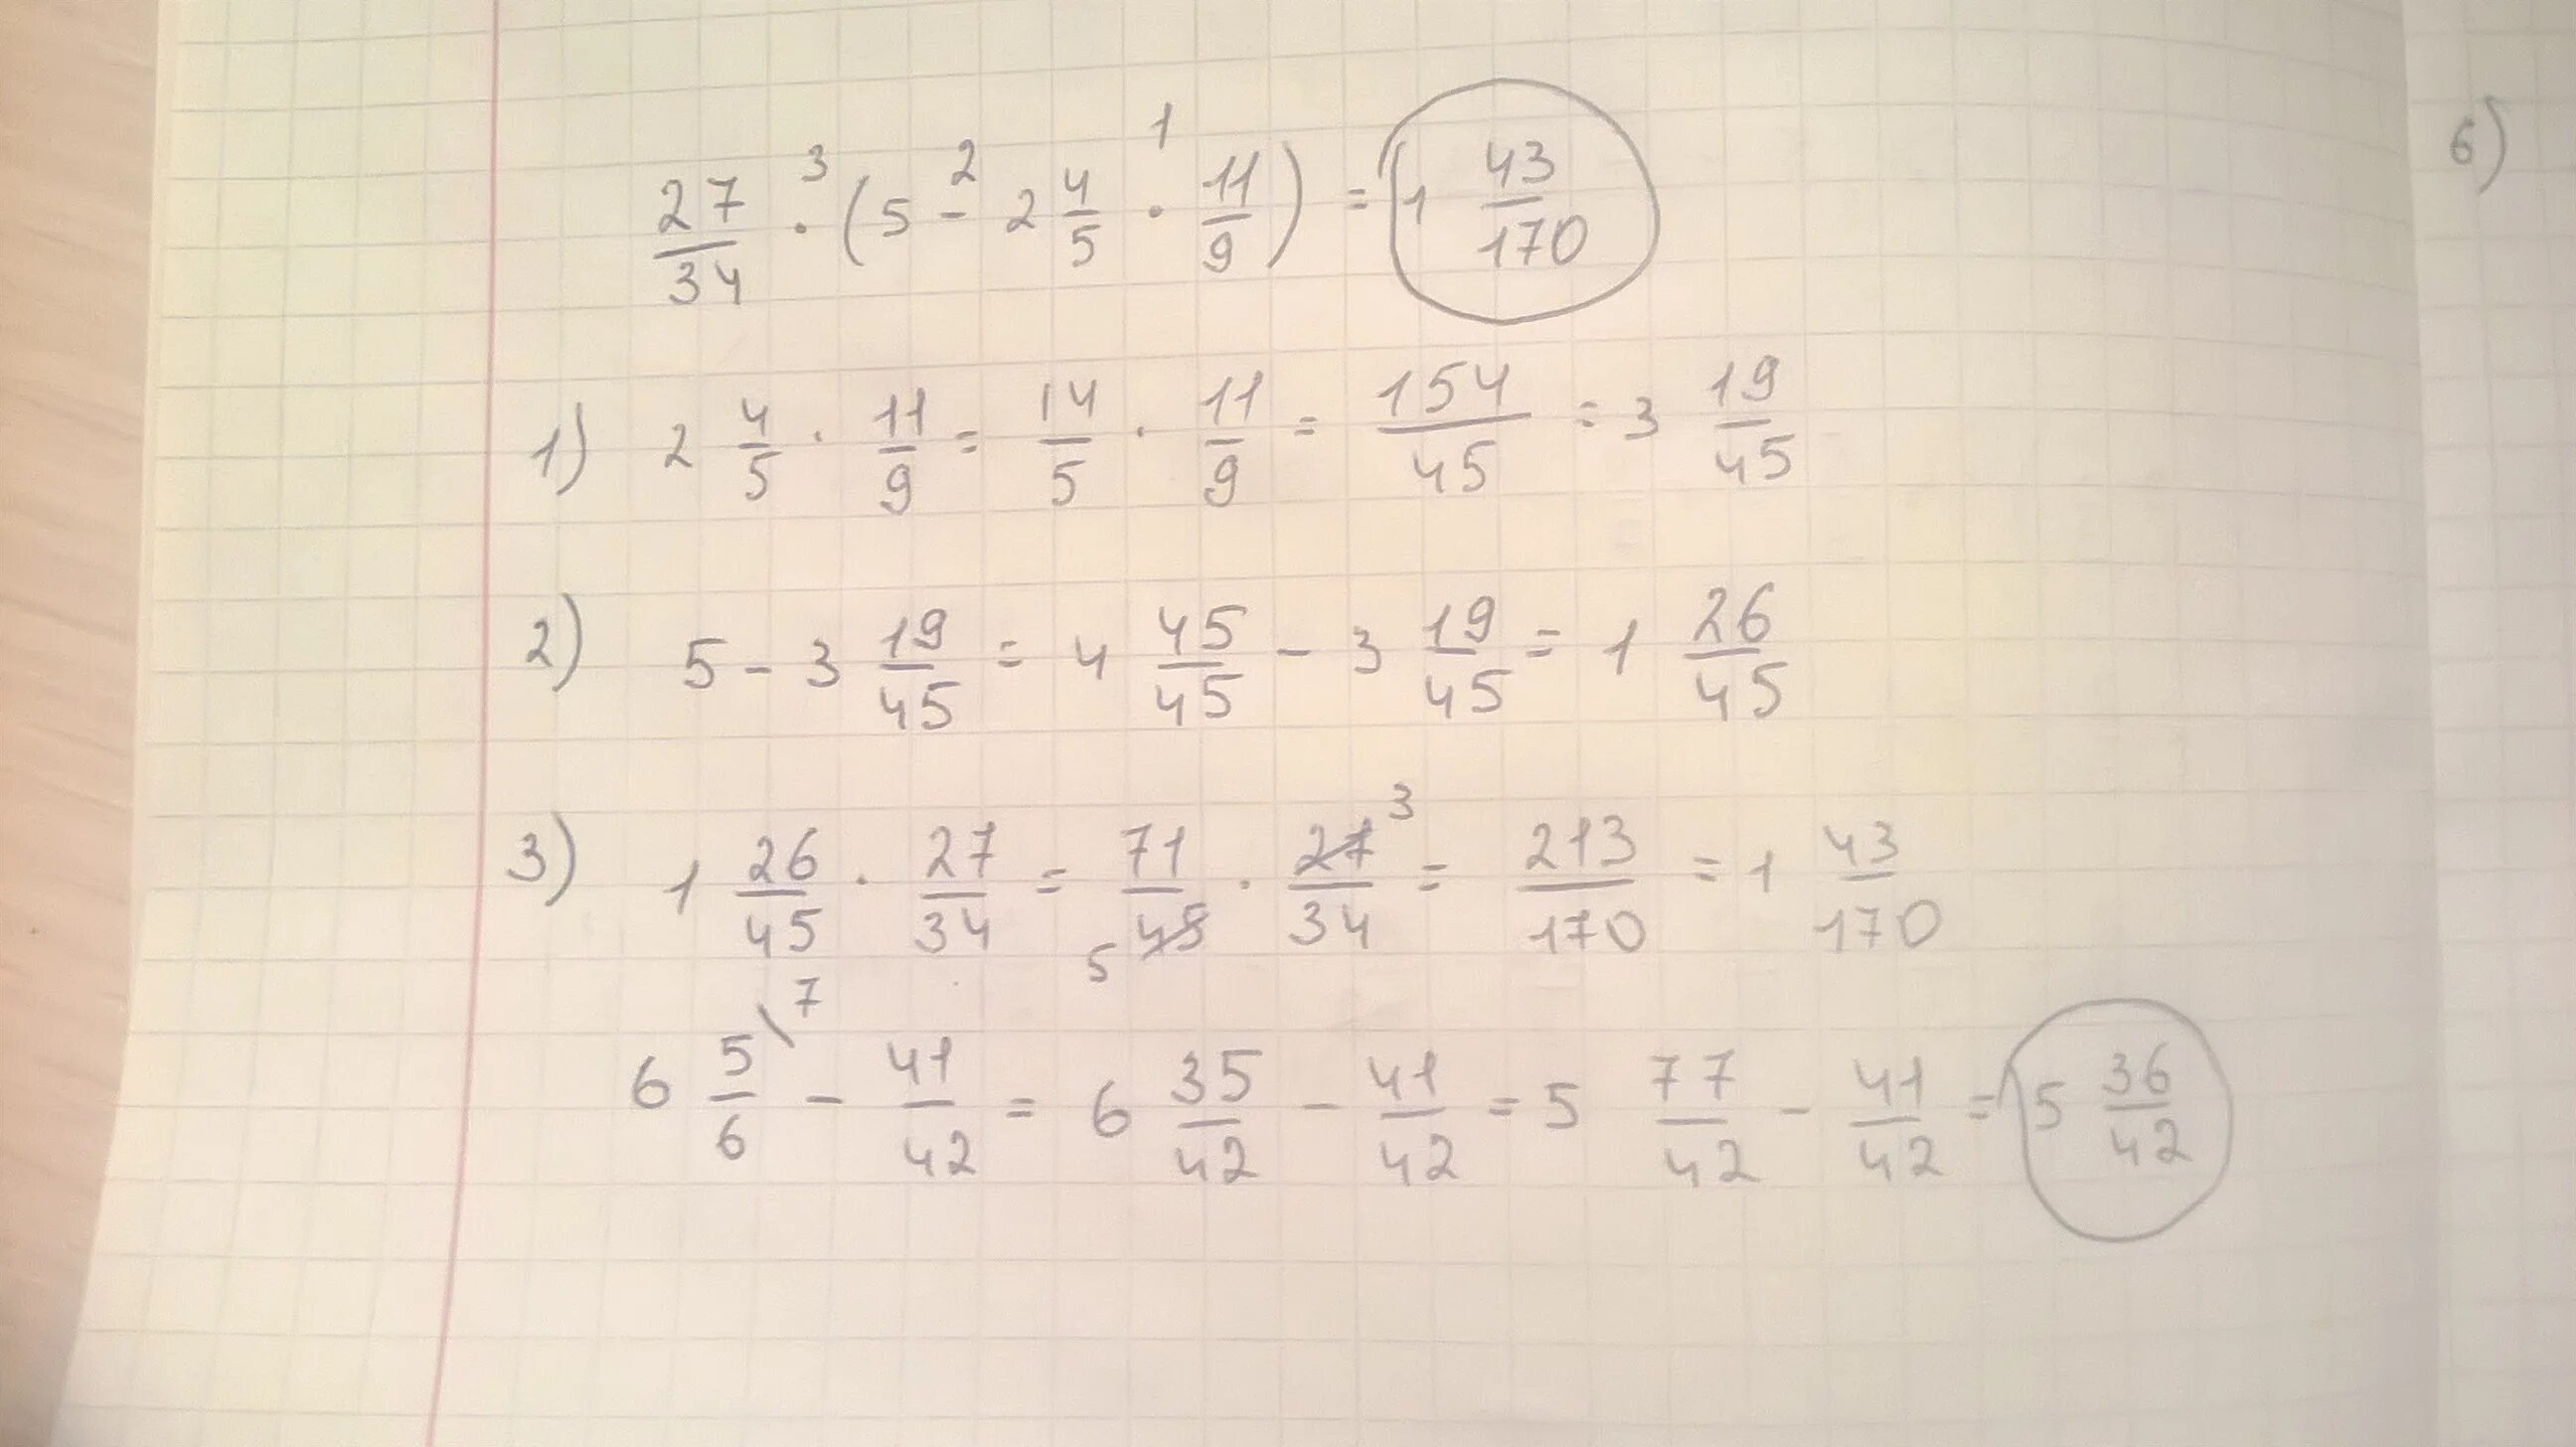 27/34 ·³ (5 -² 2 4/5 ·¹ 11/9) = 1 43/170
1) 2 4/5 · 11/9 = 14/5 · 11/9 = 154/45 = 3 19/45
2) 5 - 3 19/45 = 4 45/45 - 3 19/45 = 1 26/45
3) 1 26/45 · 27/34 = 71/45 5 · 27/34 3 = 213/170 = 1 43/170
6 5/6 \7 - 41/42 = 6 35/42 - 41/42 = 5 77/42 - 41/42 = 5 36/42
6)